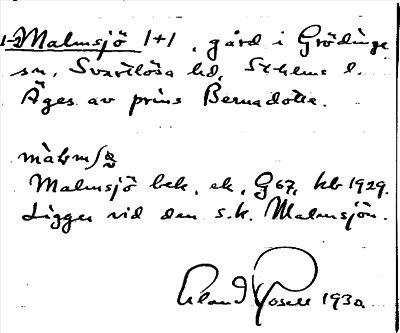 1-2 Malmsjö 1+1, gård i Grödinge
sn, Svartlösa hd, Sthlms l.
Äges av prins Bernadotte.
Malmsjö bek. ek. G67, hb 1929.
Ligger vid den s.k. Malmsjön.
Erland Rosell 1930